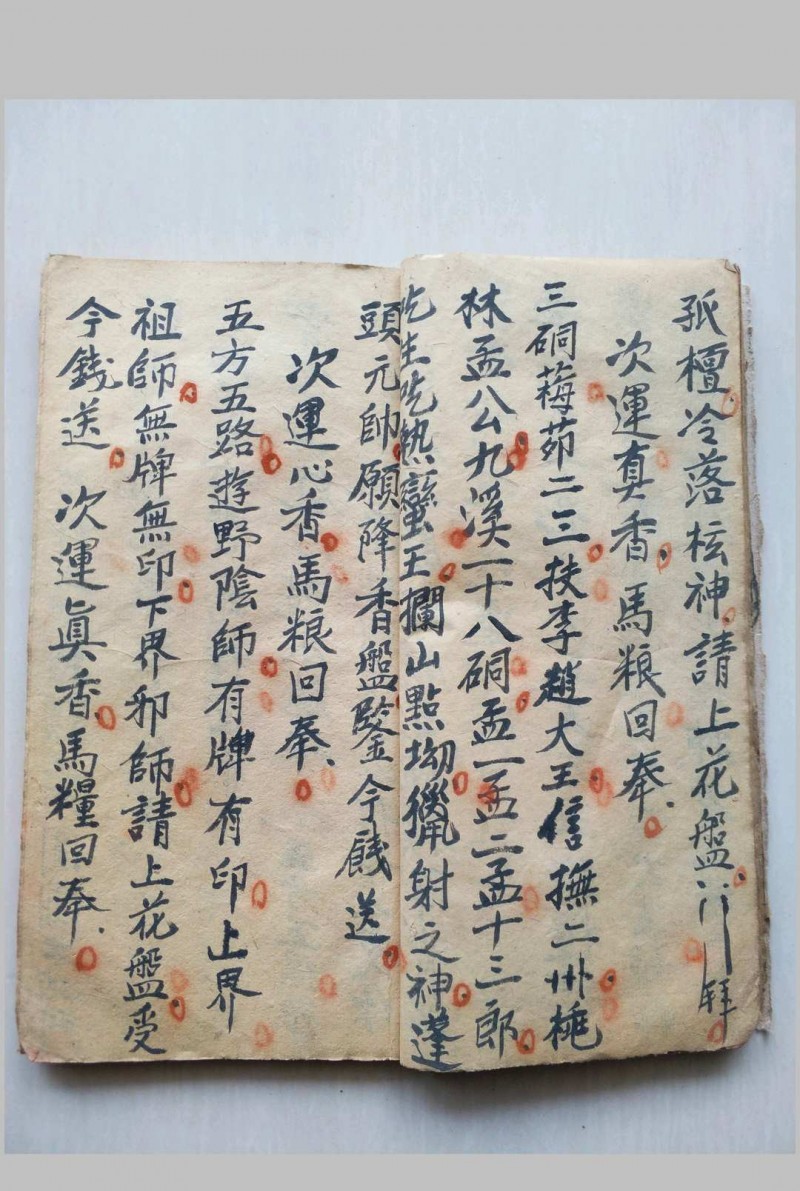 孤檀冷落枟神請上花盤
次運真香馬粮回奉
三硐莓茆二三扶李趙大王信撫二卅桅
林孟八公九溪一十八硐孟一孟二孟十三郎
吃生吃熱蠻王攔山點坳獵射之神蓬
頭元帥願降香盤鑒今餞送
次運心香馬粮回奉
五方五路遊野陰師有牌有印上界
祖師無牌無印下界邪師請上花盤受
今錢送 次運眞香馬糧回奉